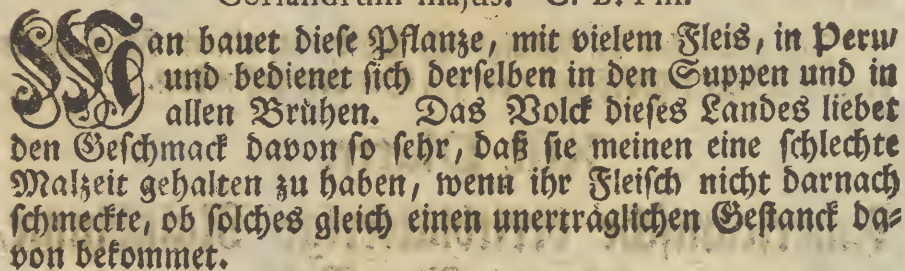 Coriandrum majus. C. B. Pin.
Man bauet diese Pflanze, mit vielem Fleis, in Peru/
und bedienet sich derselben in den Suppen und in
allen Brühen. Das Volck dieses Landes liebet
den Geschmack davon so sehr, daß sie meinen eine schlechte
Malzeit gehalten zu haben, wenn ihr Fleisch nicht darnach
schmeckte, ob solches gleich einen unerträglichen Gestanck da=
von bekommet.